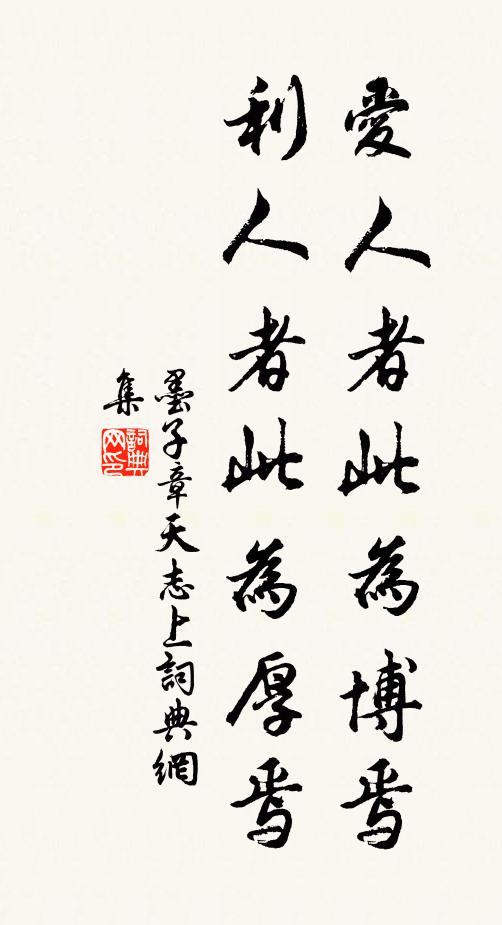 愛人者此為博焉
利人者此為厚焉
墨子章天志上詞典網
集
詞典
网印